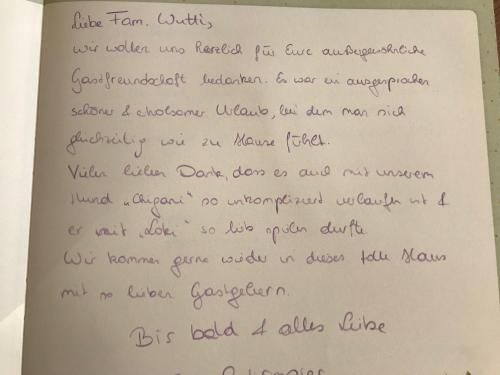 Liebe Fam. Wutti,
wir wollen uns herzlich für Eure außergewöhnliche
Gastfreundschaft bedanken. Es war ein ausgesprochen
schöner & erholsamer Urlaub, bei dem man sich
gleichzeitig wie zu Hause fühlt.
Vielen lieben Dank, dass es auch mit unserem
Hund so unkompliziert verlaufen ist &
er mit "Loki" so lieb spielen durfte.
Wir kommen gerne wieder in dieses tolle Haus
mit so lieben Gastgebern.
Bis bald & alles Liebe